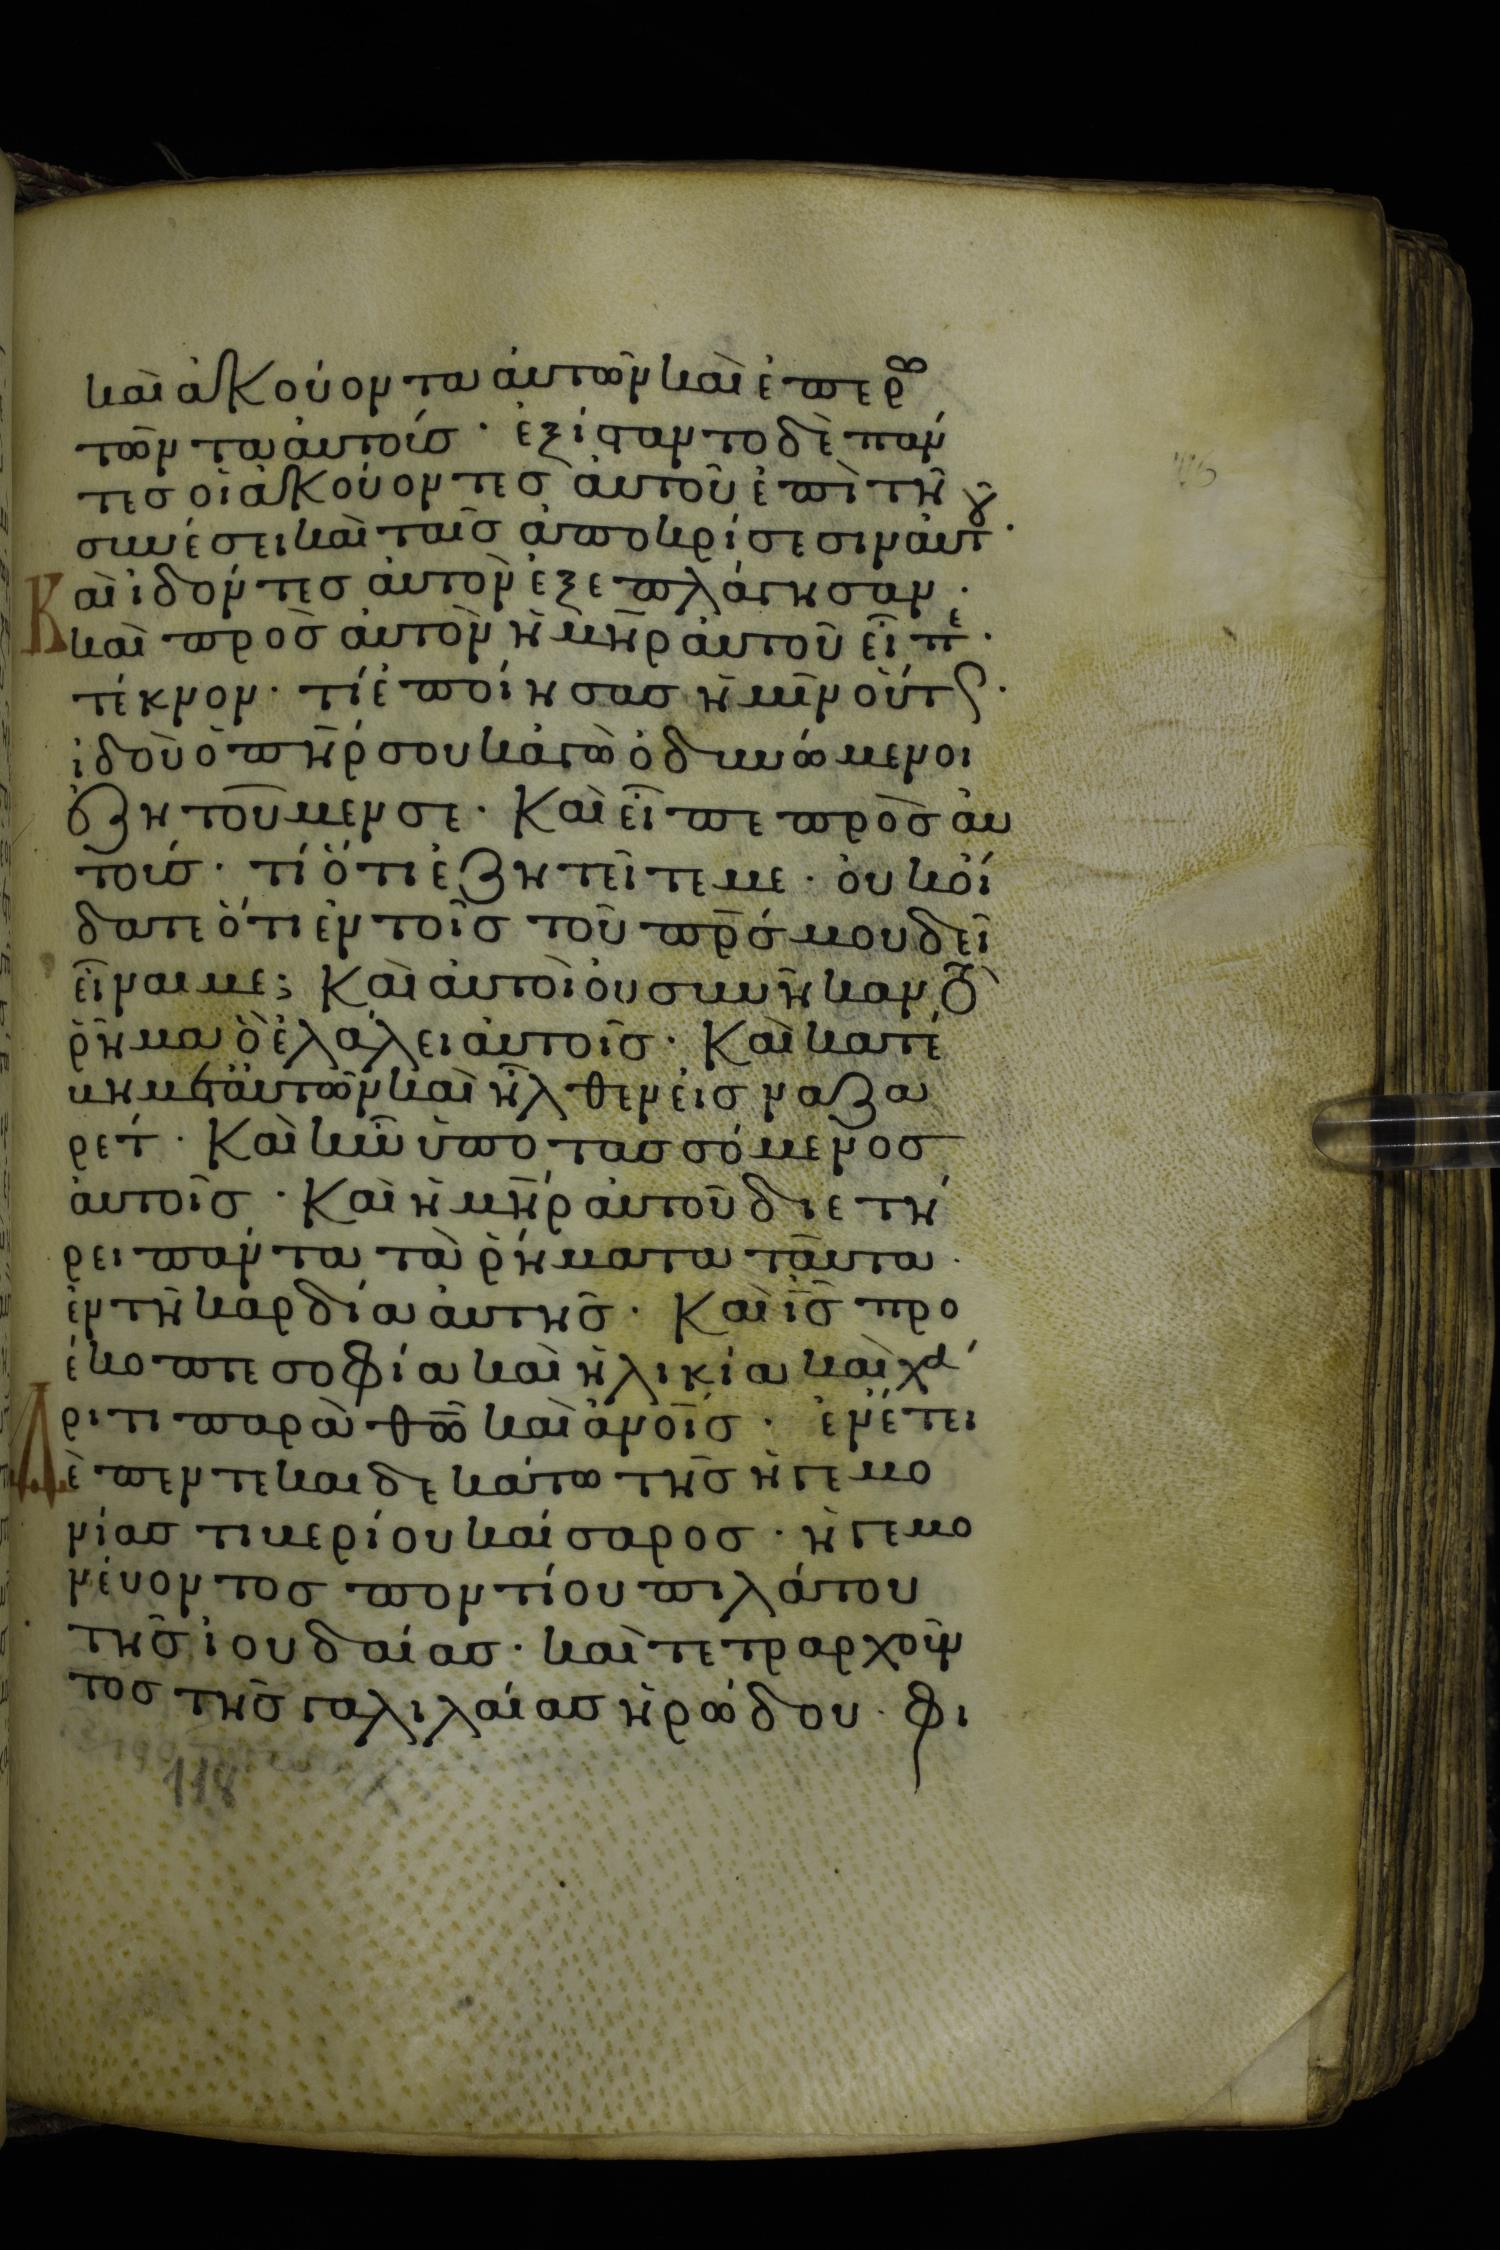 καὶ ἀκούοντα αὐτῶν καὶ ἐπερω
τῶντα αὐτούσ· ἐξίσταντο δὲ πάν
τεσ οἱ ἀκούοντεσ αὐτοῦ ἐπὶ τῆ
συνέσει καὶ ταῖσ ἀποκρίσεσιν αὐτοῦ·
Καὶ ἰδόντεσ αὐτὸν ἐξεπλάγησαν·
καὶ πρὸσ αὐτὸν ἡ μ̅η̅ρ αὐτοῦ εἶπε·
τέκνον· τί ἐποίησασ ἡμῖν οὕτωσ·
ἰδοὺ ὁ π̅η̅ρ σου κἀγὼ ὀδυνώμενοι
ζητοῦμεν σε· Καὶ εἶπε πρὸσ αὐ
τούσ· τί ὅτι ἐζητεῖτε με· οὐκ οἴ
δατε ὅτι ἐν τοῖσ τοῦ π̅ρ̅σ μου δεῖ
εἶναι με; Καὶ αὐτοὶ οὐ συνῆκαν τὸ
ῥῆμα ὃ ἐλάλει αὐτοῖσ· Καὶ κατέ
βη μετ' αὐτῶν καὶ ἦλθεν εἰσ ναζα
ρέτ· Καὶ ἦν ὑποτασσόμενοσ
αὐτοῖσ· Καὶ ἡ μ̅η̅ρ αὐτοῦ διετή
ρει πάντα τὰ ῥήματα ταῦτα·
ἐν τῆ καρδία αὐτῆσ· Καὶ ι̅σ̅ προ
έκοπτε σοφία καὶ ἡλικία καὶ χά
ριτι παρὰ θ̅ω̅ καὶ ἀ̅ν̅οισ· ἐν ἔτει
Δὲ πεντεκαιδεκάτω τῆσ ἡγεμο
νίασ τιβερίου καίσαροσ· ἡγεμο
νεύοντοσ ποντίου πιλάτου
τῆσ ἰουδαίασ· καὶ τετραρχοῦν
τοσ τῆσ γαλιλαίασ ἡρώδου· φι
118